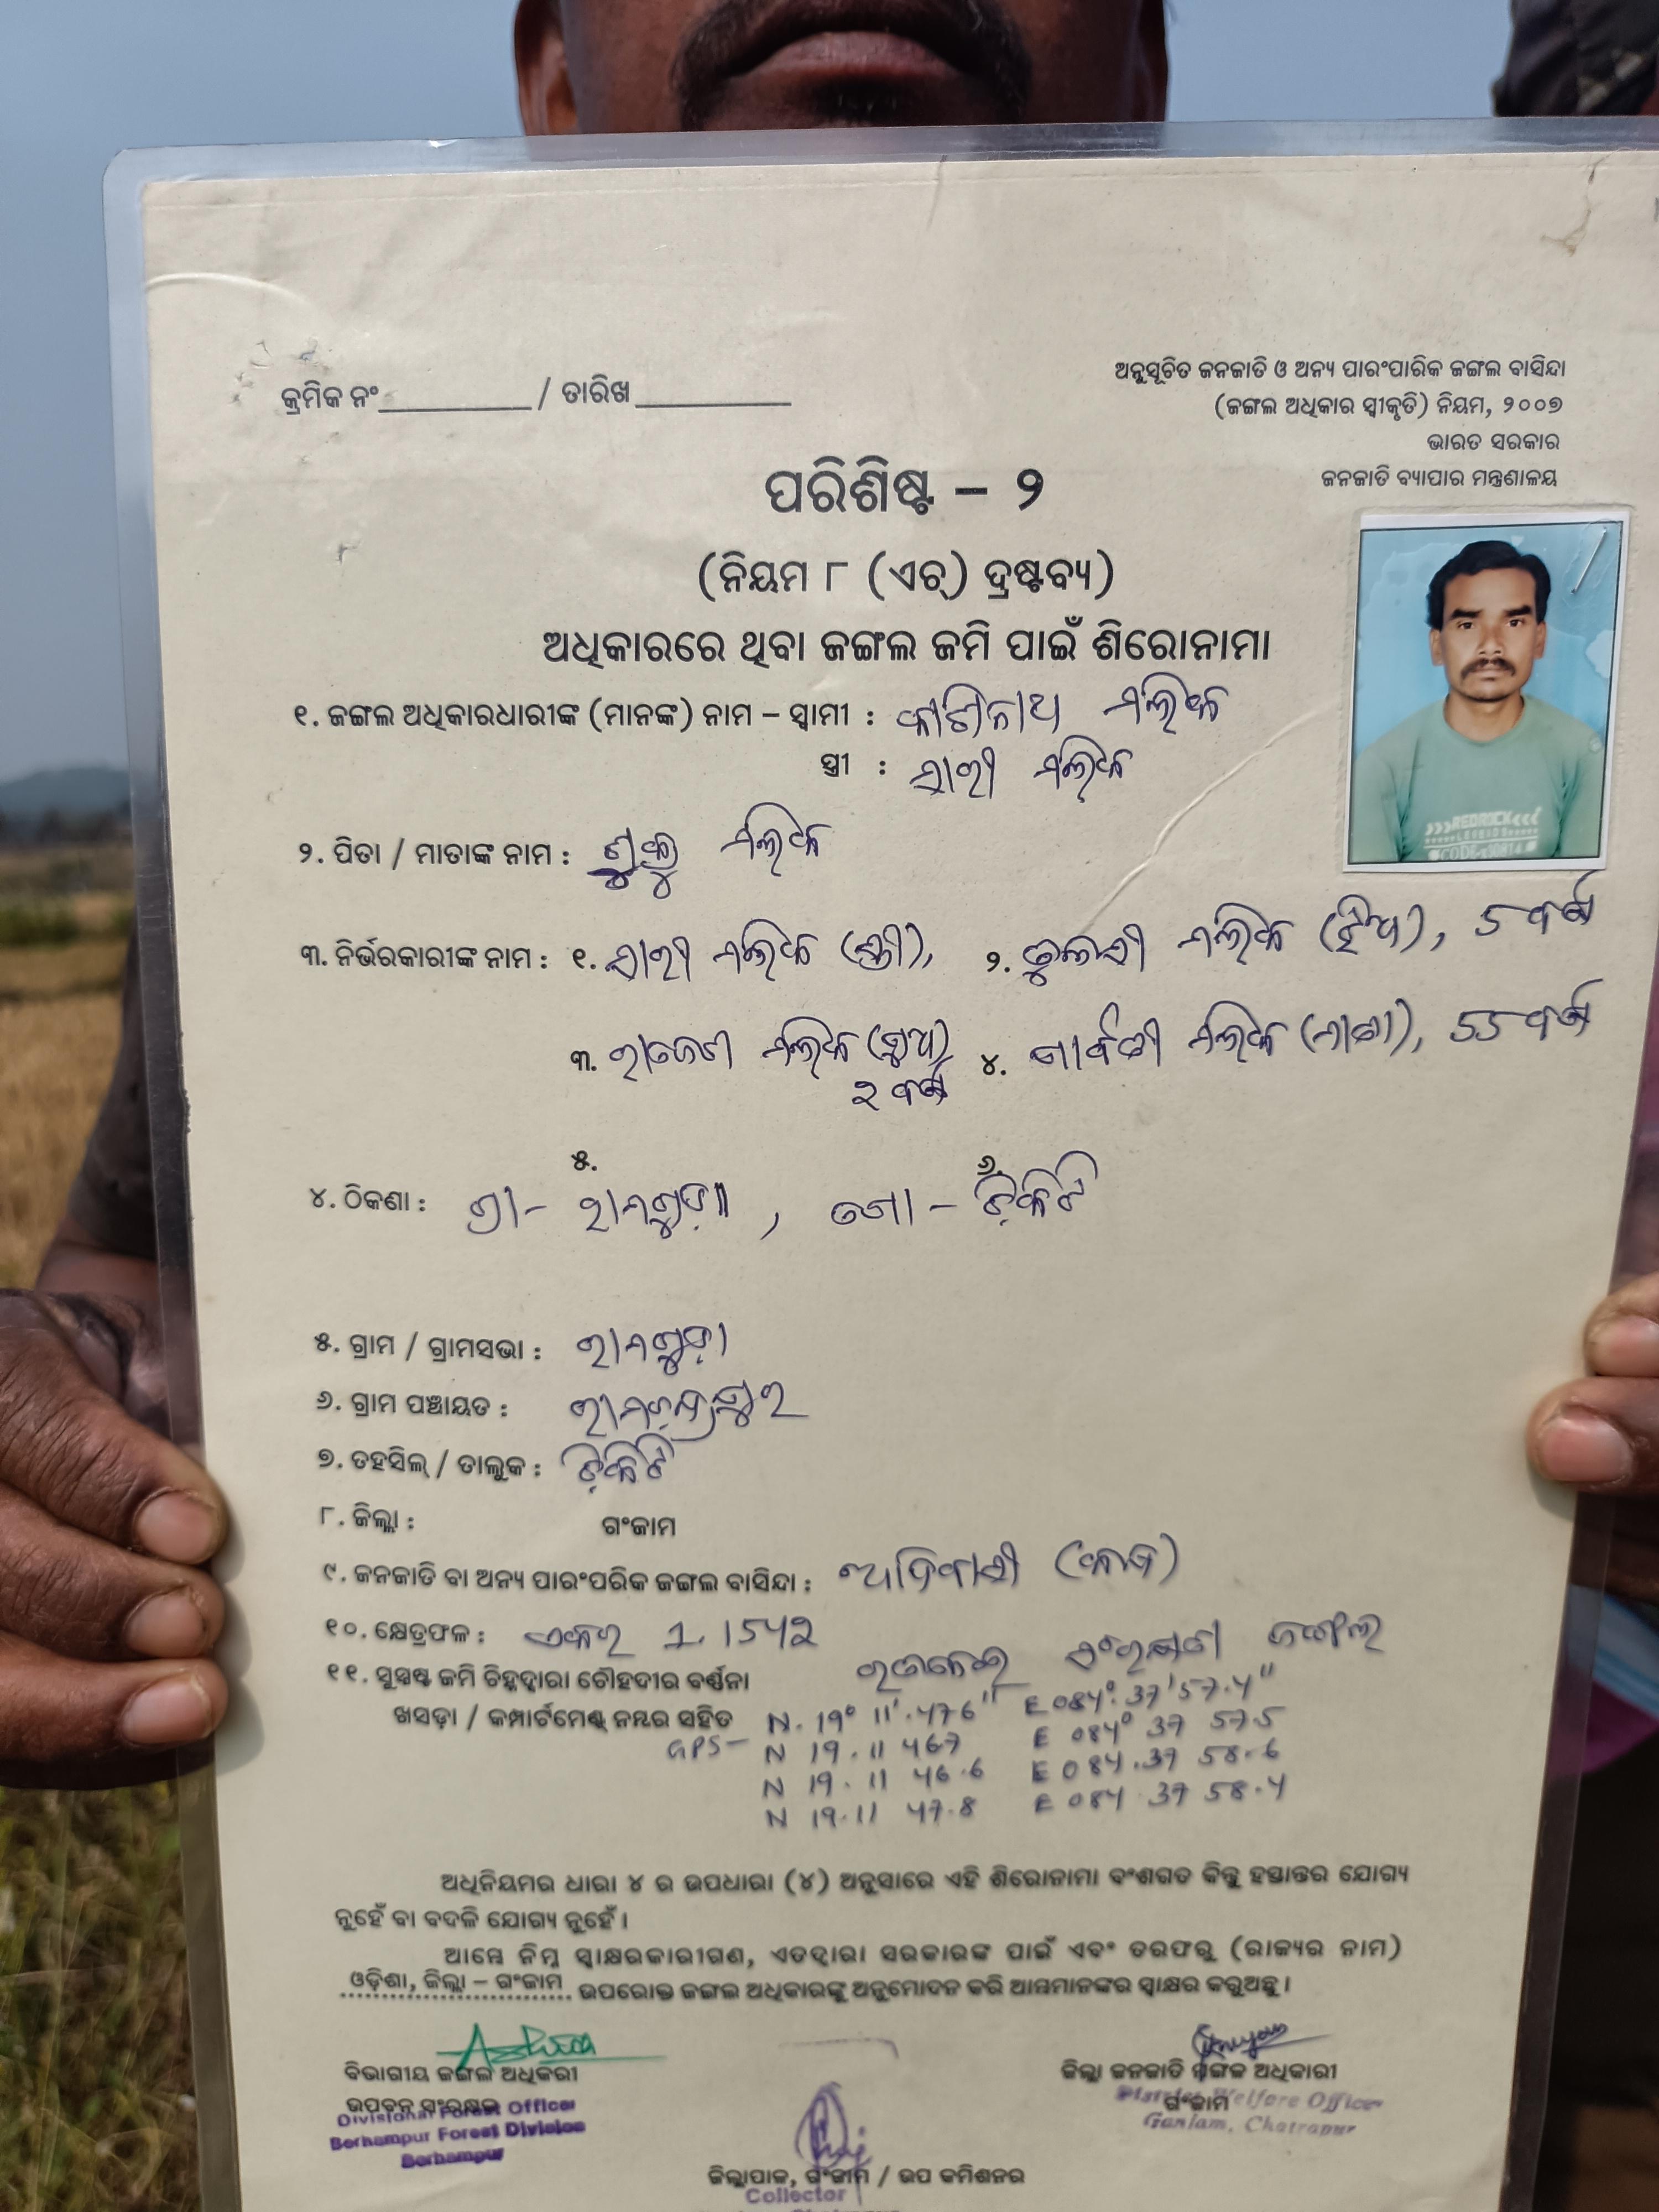 କ୍ରମିକ ନଂ__________ / ତାରିଖ__________
ଅନୁସୂଚିତ ଜନଜାତି ଓ ଅନ୍ୟ ପାରଂପାରିକ ଜଙ୍ଗଲ ବାସିନ୍ଦା
(ଜଙ୍ଗଲ ଅଧିକାର ସ୍ୱୀକୃତି) ନିୟମ, ୨୦୦୭
ଭାରତ ସରକାର
ଜନଜାତି ବ୍ୟାପାର ମନ୍ତ୍ରଣାଳୟ
ପରିଶିଷ୍ଟ – ୨
(ନିୟମ ୮ (ଏଚ୍) ଦ୍ରଷ୍ଟବ୍ୟ)
ଅଧିକାରରେ ଥିବା ଜଙ୍ଗଲ ଜମି ପାଇଁ ଶିରୋନାମା
REDROCK
୧. ଜଙ୍ଗଲ ଅଧିକାରଧାରୀଙ୍କ (ମାନଙ୍କ) ନାମ – ସ୍ୱାମୀ : କାଶୀନାଥ ମଲିକ
ସ୍ତ୍ରୀ : ମଲିକ
୨. ପିତା / ମାତାଙ୍କ ନାମ : ମଲିକ
୩. ନିର୍ଭରକାରୀଙ୍କ ନାମ : ୧. ମଲିକ (ସ୍ତ୍ରୀ), ୨. ତୁଳସୀ ମଲିକ (ଝିଅ), 5 ବର୍ଷ
୩. ମଲିକ (ପୁଅ) ୪. ପାର୍ବତୀ ମଲିକ (ମାତା), 55 ବର୍ଷ
୨ ବର୍ଷ
୫. ୬.
୪. ଠିକଣା : ଗ୍ରା– ରାମଗୁଡ଼ା, ପୋ– ଚିକିଟି
୫. ଗ୍ରାମ / ଗ୍ରାମସଭା : ରାମଗୁଡ଼ା
୬. ଗ୍ରାମ ପଞ୍ଚାୟତ : ରାମଚନ୍ଦ୍ରପୁର
୭. ତହସିଲ୍ / ତାଲୁକ : ଚିକିଟି
୮. ଜିଲ୍ଲା : ଗଂଜାମ
୯. ଜନଜାତି ବା ଅନ୍ୟ ପାରଂପରିକ ଜଙ୍ଗଲ ବାସିନ୍ଦା : ଆଦିବାସୀ
୧୦. କ୍ଷେତ୍ରଫଳ : ଏକର 1.1542
୧୧. ସୁସ୍ପଷ୍ଟ ଜମି ଚିହ୍ନଦ୍ୱାରା ଚୌହଦୀର ବର୍ଣ୍ଣନା ସଂରକ୍ଷିତ ଜଙ୍ଗଲ
ଖସଡ଼ା / କମ୍ପାର୍ଟମେଣ୍ଟ ନମ୍ବର ସହିତ N. 19° 11'.47.6" E 084°. 37' 57.4"
GPS– N 19.11 46.7 E 084° 37 57.5
N 19.11 46.6 E 084.37 58.6
N 19.11 47.8 E 084.37 58.4
ଅଧିନିୟମର ଧାରା ୪ ର ଉପଧାରା (୪) ଅନୁସାରେ ଏହି ଶିରୋନାମା ବଂଶଗତ କିନ୍ତୁ ହସ୍ତାନ୍ତର ଯୋଗ୍ୟ
ନୁହେଁ ବା ବଦଳି ଯୋଗ୍ୟ ନୁହେଁ ।
ଆମ୍ଭେ ନିମ୍ନ ସ୍ୱାକ୍ଷରକାରୀଗଣ, ଏତଦ୍ୱାରା ସରକାରଙ୍କ ପାଇଁ ଏବଂ ତରଫରୁ (ରାଜ୍ୟର ନାମ)
ଓଡ଼ିଶା, ଜିଲ୍ଲା – ଗଂଜାମ ଉପରୋକ୍ତ ଜଙ୍ଗଲ ଅଧିକାରଙ୍କୁ ଅନୁମୋଦନ କରି ଆମ୍ଭମାନଙ୍କର ସ୍ୱାକ୍ଷର କରୁଅଛୁ ।
ବିଭାଗୀୟ ଜଙ୍ଗଲ ଅଧିକରୀ
ଉପବନ ସଂରକ୍ଷକ
Divisional Forest Officer
Berhampur Forest Division
Berhampur
ଜିଲ୍ଲା ଜନଜାତି ମଙ୍ଗଳ ଅଧିକାରୀ
ଗଂଜାମ
District Welfare Officer
Ganjam, Chatrapur
ଜିଲ୍ଲାପାଳ, ଗଂଜାମ / ଉପ କମିଶନର
Collector